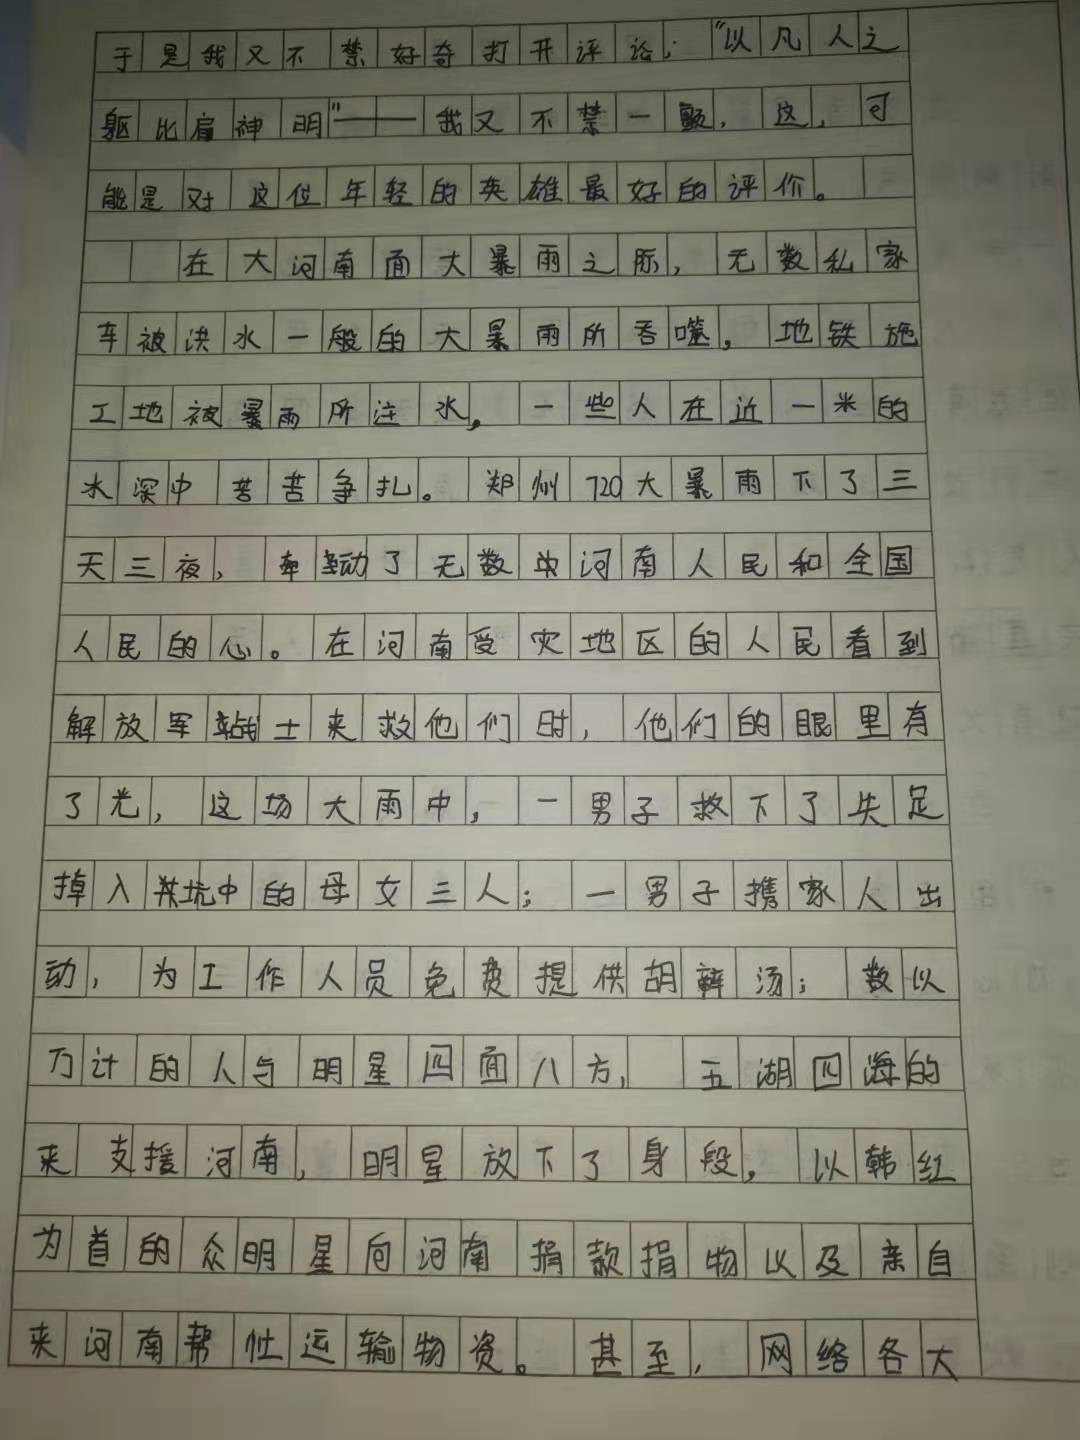 于是我又不禁好奇打开评论："以凡人之
躯比肩神明"——我又不禁一颤，这，可
能是对这位年轻的英雄最好的评价。
在大河南面大暴雨之际，无数私家
车被洪水一般的大暴雨所吞噬，地铁施
工地被暴雨所注水，一些人在近一米的
水深中苦苦争扎。郑州720大暴雨下了三
天三夜，牵动了无数中河南人民和全国
人民的心。在河南受灾地区的人民看到
解放军战士来救他们时，他们的眼里有
了光，这场大雨中，一男子救下了失足
掉入井坑中的母女三人；一男子携家人出
动，为工作人员免费提供胡辣汤；数以
万计的人与明星四面八方，五湖四海的
来支援河南，明星放下了身段，以韩红
为首的众明星向河南捐款捐物以及亲自
来河南帮忙运输物资。甚至，网络各大